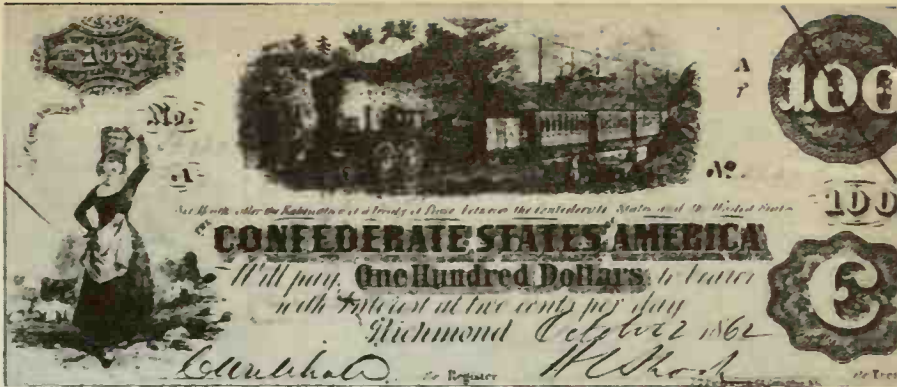 100
100
No.
A
A
No.
100
Six Months after the Ratification of a Treaty of Peace between the Confederate States and the United States
CONFEDERATE STATES AMERICA
Will pay One Hundred Dollars to bearer
with Interest at two cents per day
Richmond October 2 1862
C
for Register
for Treas